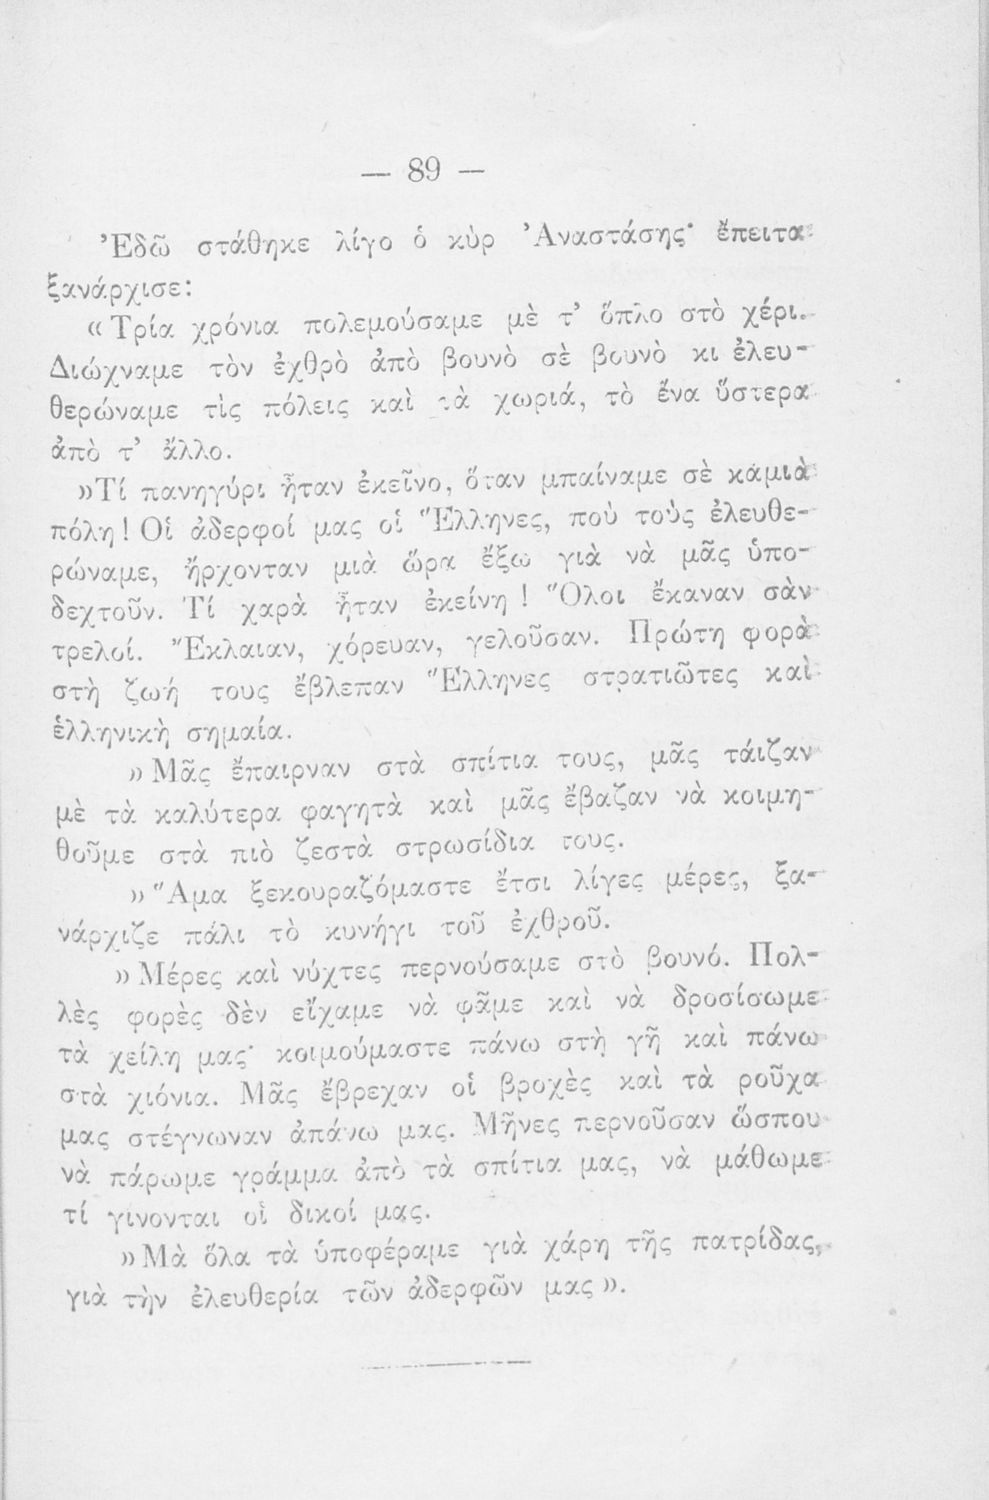 — 89 —
Ἐδῶ στάθηκε λίγο ὁ κὺρ Ἀναστάσης· ἔπειτα
ξανάρχισε:
«Τρία χρόνια πολεμούσαμε μὲ τ' ὅπλο στὸ χέρι.
Διώχναμε τὸν ἐχθρὸ ἀπὸ βουνὸ σὲ βουνὸ κι ἐλευ-
θερώναμε τὶς πόλεις καὶ τὰ χωριά, τὸ ἕνα ὕστερα
ἀπὸ τ' ἄλλο.
»Τί πανηγύρι ἦταν ἐκεῖνο, ὅταν μπαίναμε σὲ καμιὰ
πόλη! Οἱ ἀδερφοί μας οἱ Ἕλληνες, ποὺ τοὺς ἐλευθε-
ρώναμε, ἤρχονταν μιὰ ὥρα ἔξω γιὰ νὰ μᾶς ὑπο-
δεχτοῦν. Τί χαρὰ ἦταν ἐκείνη! Ὅλοι ἔκαναν σὰν
τρελοί. Ἔκλαιαν, χόρευαν, γελοῦσαν. Πρώτη φορὰ
στὴ ζωή τους ἔβλεπαν Ἕλληνες στρατιῶτες καὶ
ἑλληνικὴ σημαία.
»Μᾶς ἔπαιρναν στὰ σπίτια τους, μᾶς τάιζαν
μὲ τὰ καλύτερα φαγητὰ καὶ μᾶς ἔβαζαν νὰ κοιμη-
θοῦμε στὰ πιὸ ζεστὰ στρωσίδια τους.
»Ἅμα ξεκουραζόμαστε ἔτσι λίγες μέρες, ξα-
νάρχιζε πάλι τὸ κυνήγι τοῦ ἐχθροῦ.
»Μέρες καὶ νύχτες περνούσαμε στὸ βουνό. Πολ-
λὲς φορὲς δὲν εἴχαμε νὰ φᾶμε καὶ νὰ δροσίσωμε
τὰ χείλη μας· κοιμούμαστε πάνω στὴ γῆ καὶ πάνω
στὰ χιόνια. Μᾶς ἔβρεχαν οἱ βροχὲς καὶ τὰ ροῦχα
μας στέγνωναν ἀπάνω μας. Μῆνες περνοῦσαν ὥσπου
νὰ πάρωμε γράμμα ἀπὸ τὰ σπίτια μας, νὰ μάθωμε
τί γίνονται οἱ δικοί μας.
»Μὰ ὅλα τὰ ὑποφέραμε γιὰ χάρη τῆς πατρίδας,
γιὰ τὴν ἐλευθερία τῶν ἀδερφῶν μας».